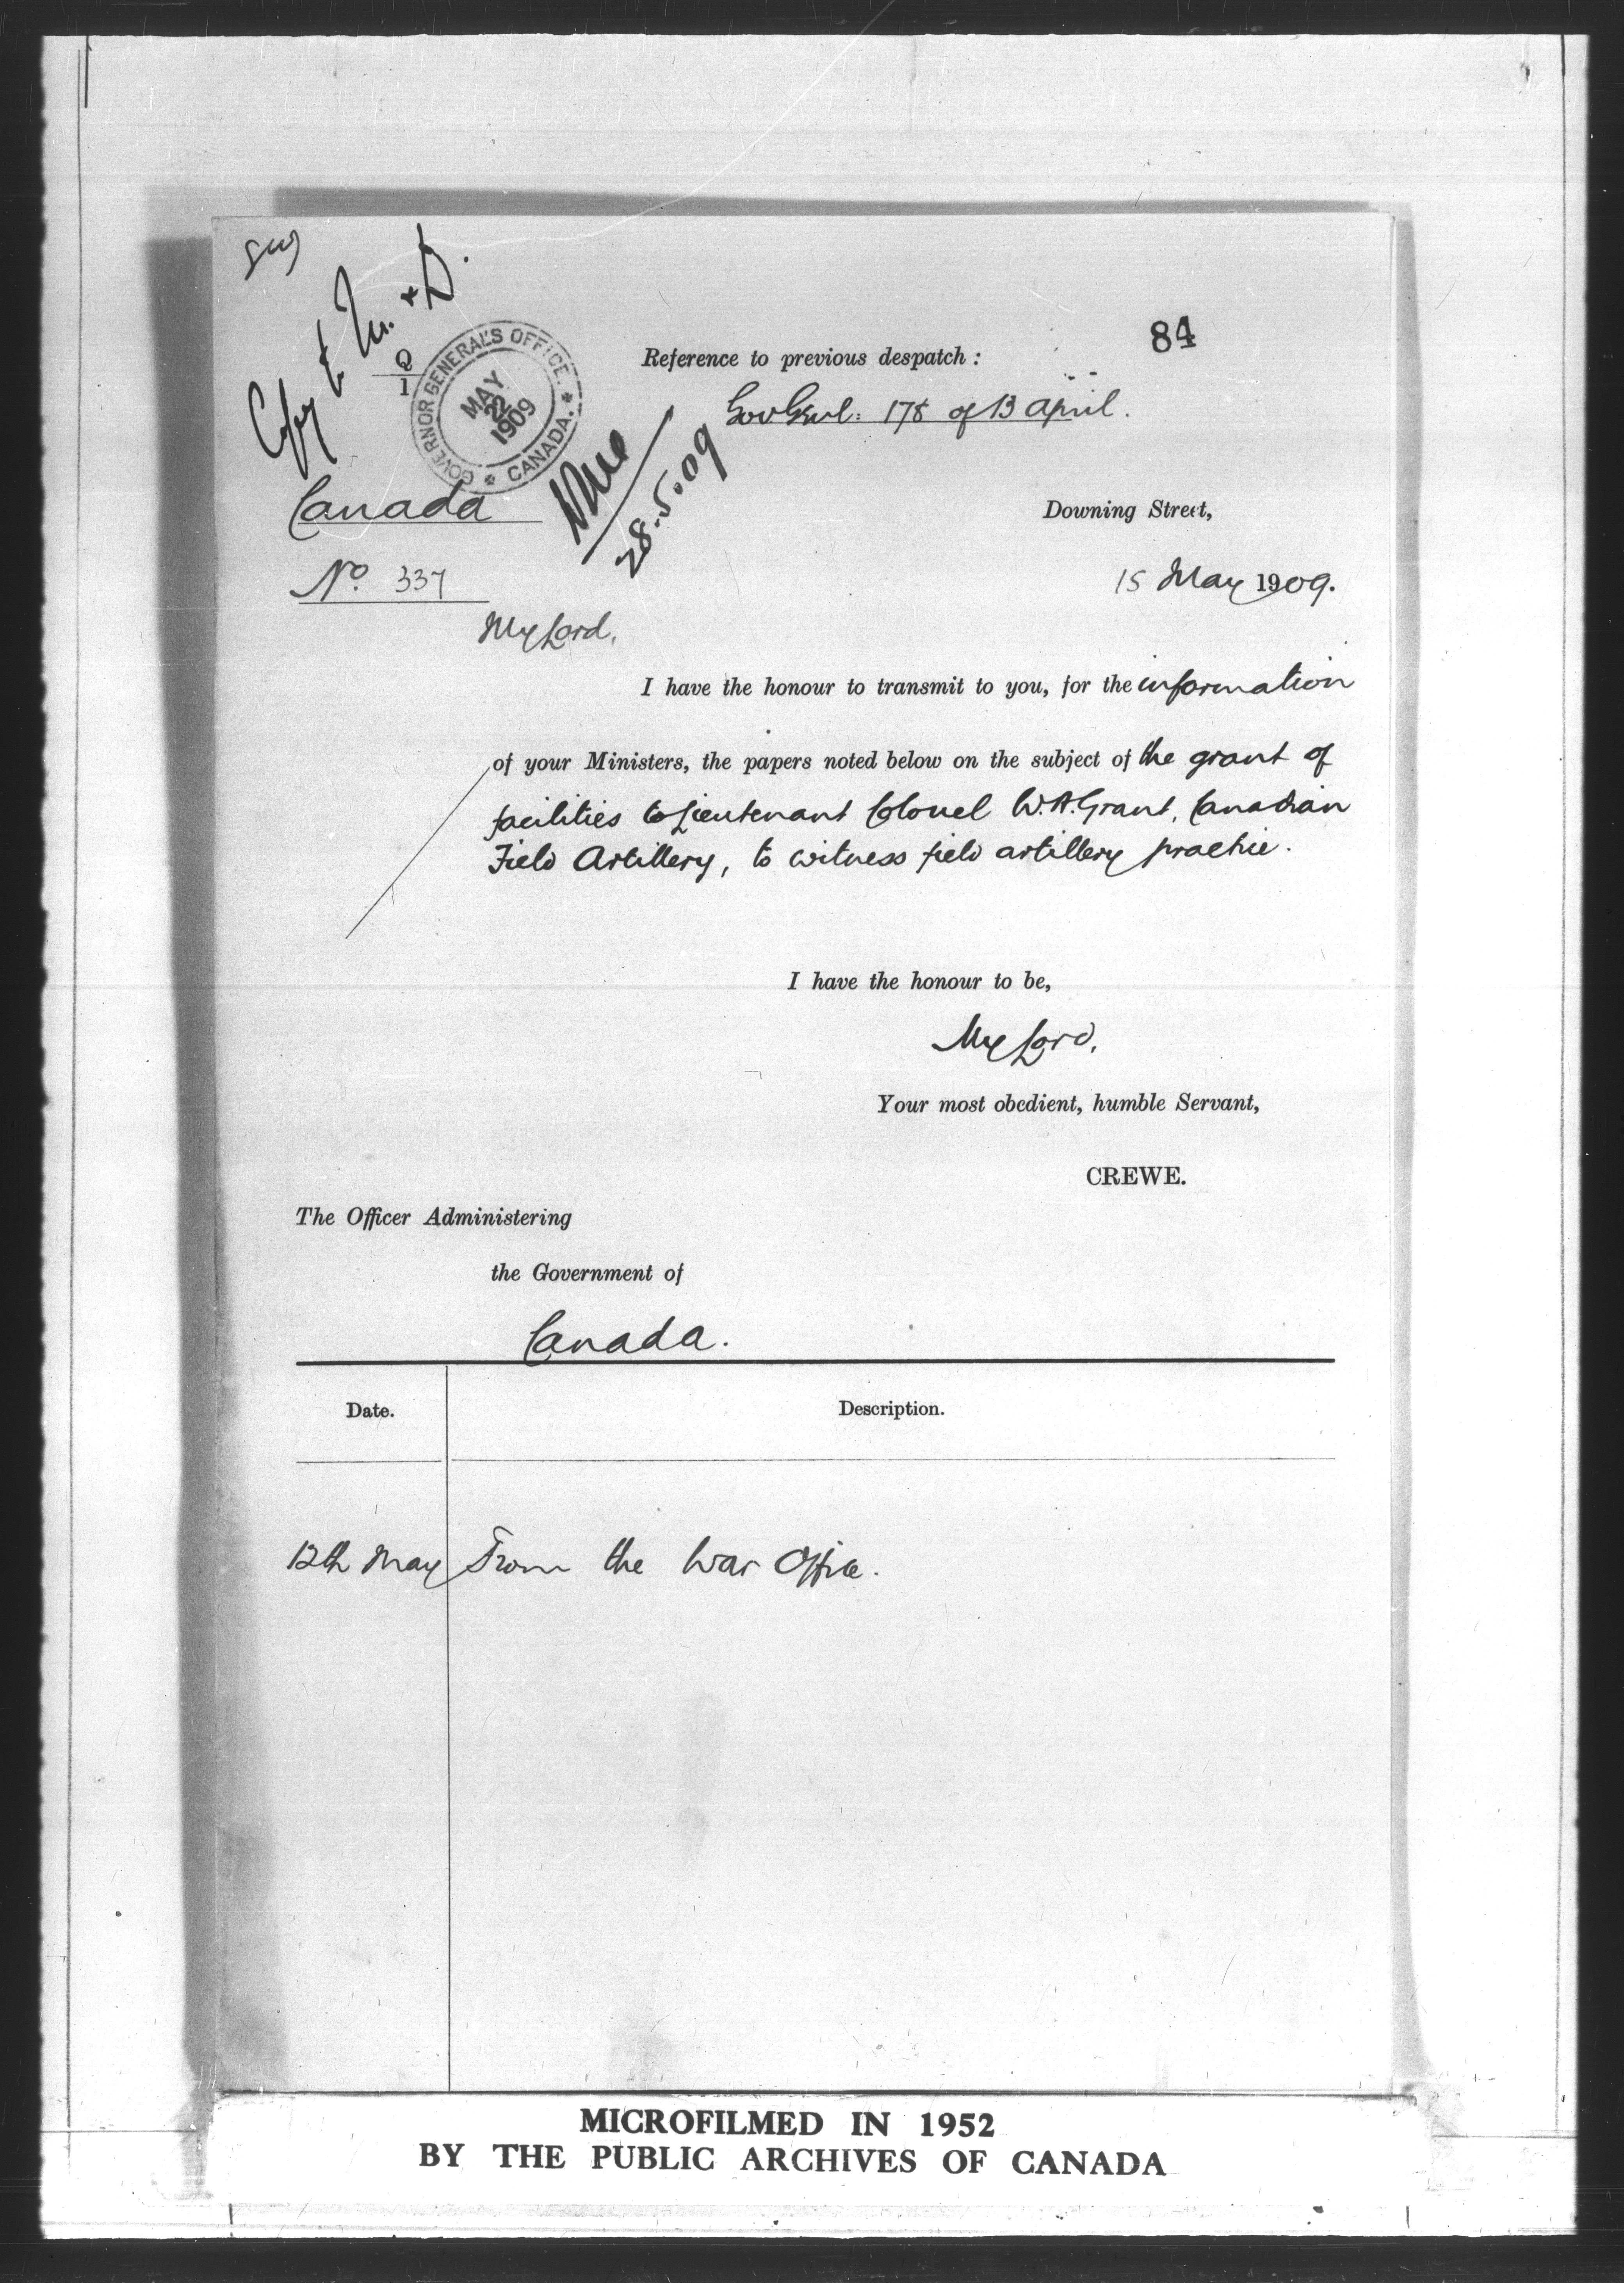 Copy to M. & D.
84
Reference to previous despatch :
Gov Genl: 178 of 13 April.
GOVERNOR GENERAL'S OFFICE.
MAY
22
1909
* CANADA. *
28.5.09
Canada
Downing Street,
No. 337
15 May 1909.
My Lord,
I have the honour to transmit to you, for the information
of your Ministers, the papers noted below on the subject of the grant of
facilities to Lieutenant Colonel W.A. Grant, Canadian
Field Artillery, to witness field artillery practice.
I have the honour to be,
My Lord,
Your most obedient, humble Servant,
CREWE.
The Officer Administering
the Government of
Canada.
Date.
Description.
12th May
From the War Office.
MICROFILMED IN 1952
BY THE PUBLIC ARCHIVES OF CANADA